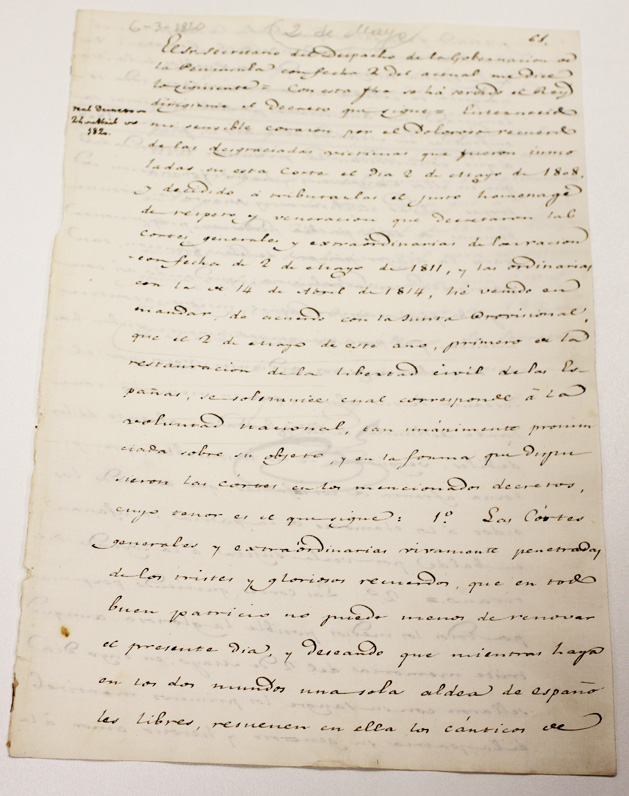 6-3-1820
(2 de Mayo)
61.
El Sr. Secretario del Despacho de la Gobernacion de
la Peninsula con fecha 2 del actual me dice
lo siguiente = Con esta fha se ha servido el Rey
dirigirme el Decreto que sigue =
Real Decreto
24 de Abril de
1820
mi sensible corazon por el doloroso recuerdo
de las desgraciadas victimas que fueron inmo
ladas en esta Corte el dia 2 de Mayo de 1808,
y decidido á tributarlas el justo homenage
de respeto y veneracion que decretaron las
Cortes generales y extraordinarias de la nacion
con fecha de 2 de Mayo de 1811, y las ordinarias
con la de 14 de Abril de 1814, hé venido en
mandar, de acuerdo con la Junta Provisional,
que el 2 de Mayo de este año, primero de la
restauracion de la libertad civil de las Es-
pañas, se solemnice cual corresponde á la
voluntad nacional, tan unánimente pronun
ciada sobre su objeto, y en la forma que dispu
sieron las córtes en los mencionados decretos,
cuyo tenor es el que sigue: 1º Las Córtes
generales y extraordinarias vivamente penetradas
de los tristes y gloriosos recuerdos, que en todo
buen patricio no puede menos de renovar
el presente dia, y deseando que mientras haya
en los dos mundos una sola aldea de españo
les libres, resuenen en ella los cánticos de